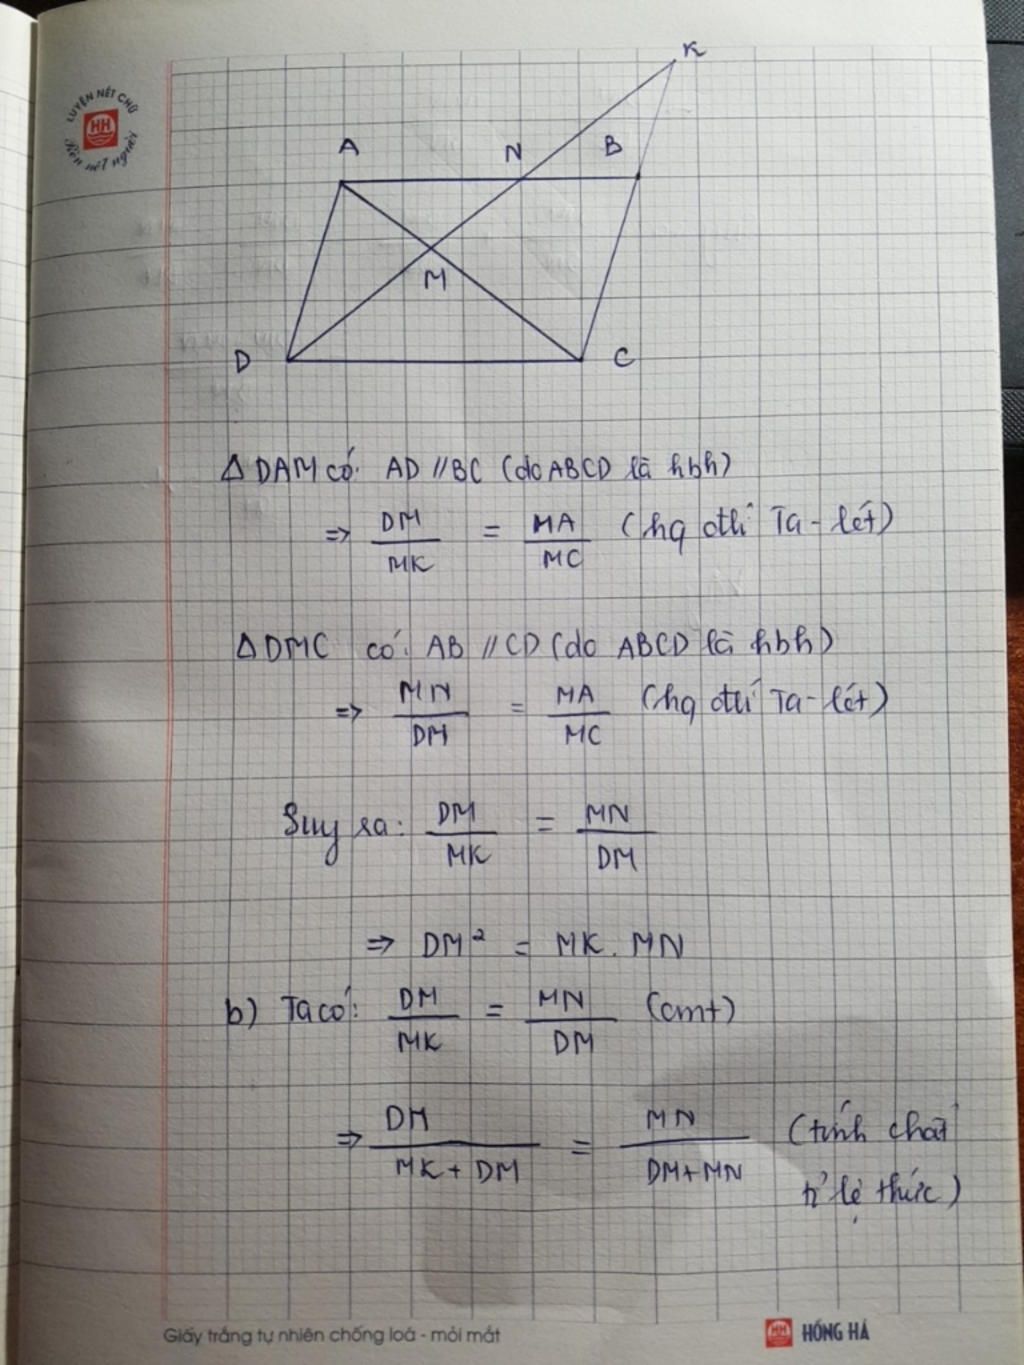 LUYỆN NÉT CHỮ
HH
Rèn nét người
K
A N B
M
D C
Δ DAM có: AD // BC (do ABCD là hbh)
⇒ DM/MK = MA/MC (hq đlí Ta-lét)
Δ DMC có: AB // CD (do ABCD là hbh)
⇒ MN/DM = MA/MC (hq đlí Ta-lét)
Suy ra: DM/MK = MN/DM
⇒ DM² = MK . MN
b) Ta có: DM/MK = MN/DM (cmt)
⇒ DM/(MK + DM) = MN/(DM+MN) (tính chất
tỉ lệ thức)
Giấy trắng tự nhiên chống loá - mỏi mắt
HH HỒNG HÀ